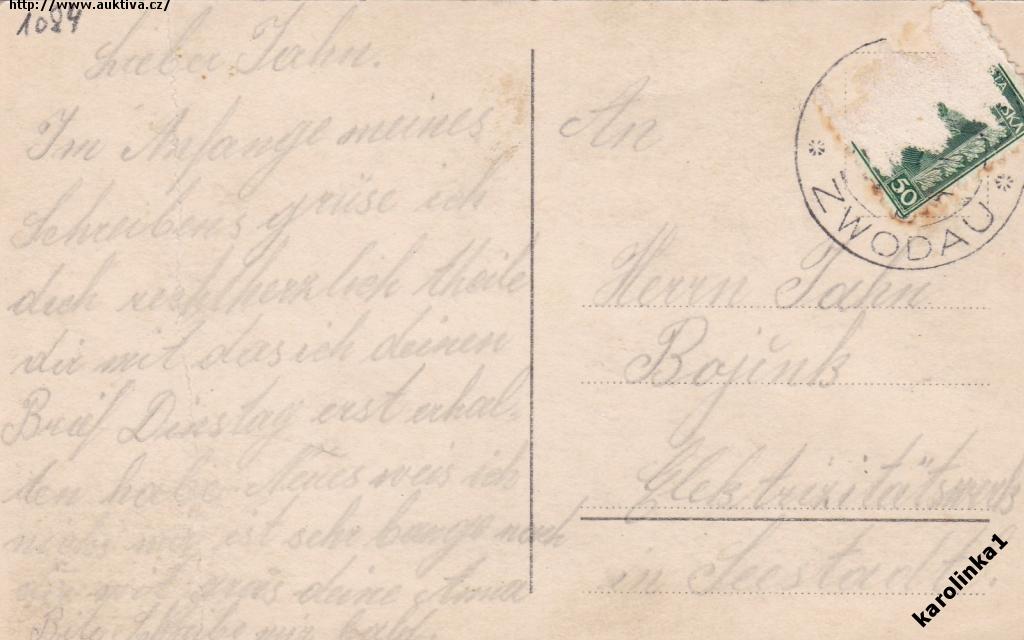 http://www.auktiva.cz/
1084
Lieber Jahn.
Im Anfange meines
Schreibens grüse ich
dich rechtherzlich theile
dir mit das ich deinen
Brief Dinstag erst erhal-
ten habe Neues weis ich
nichts mir ist sehr bange nach
dir mit grus deine Anna
Bitte schreibe mir bald.
An
Herrn Jahn
Elektrizitätswerk
in Seestadtl.
50
ZWODAU
karolinka1